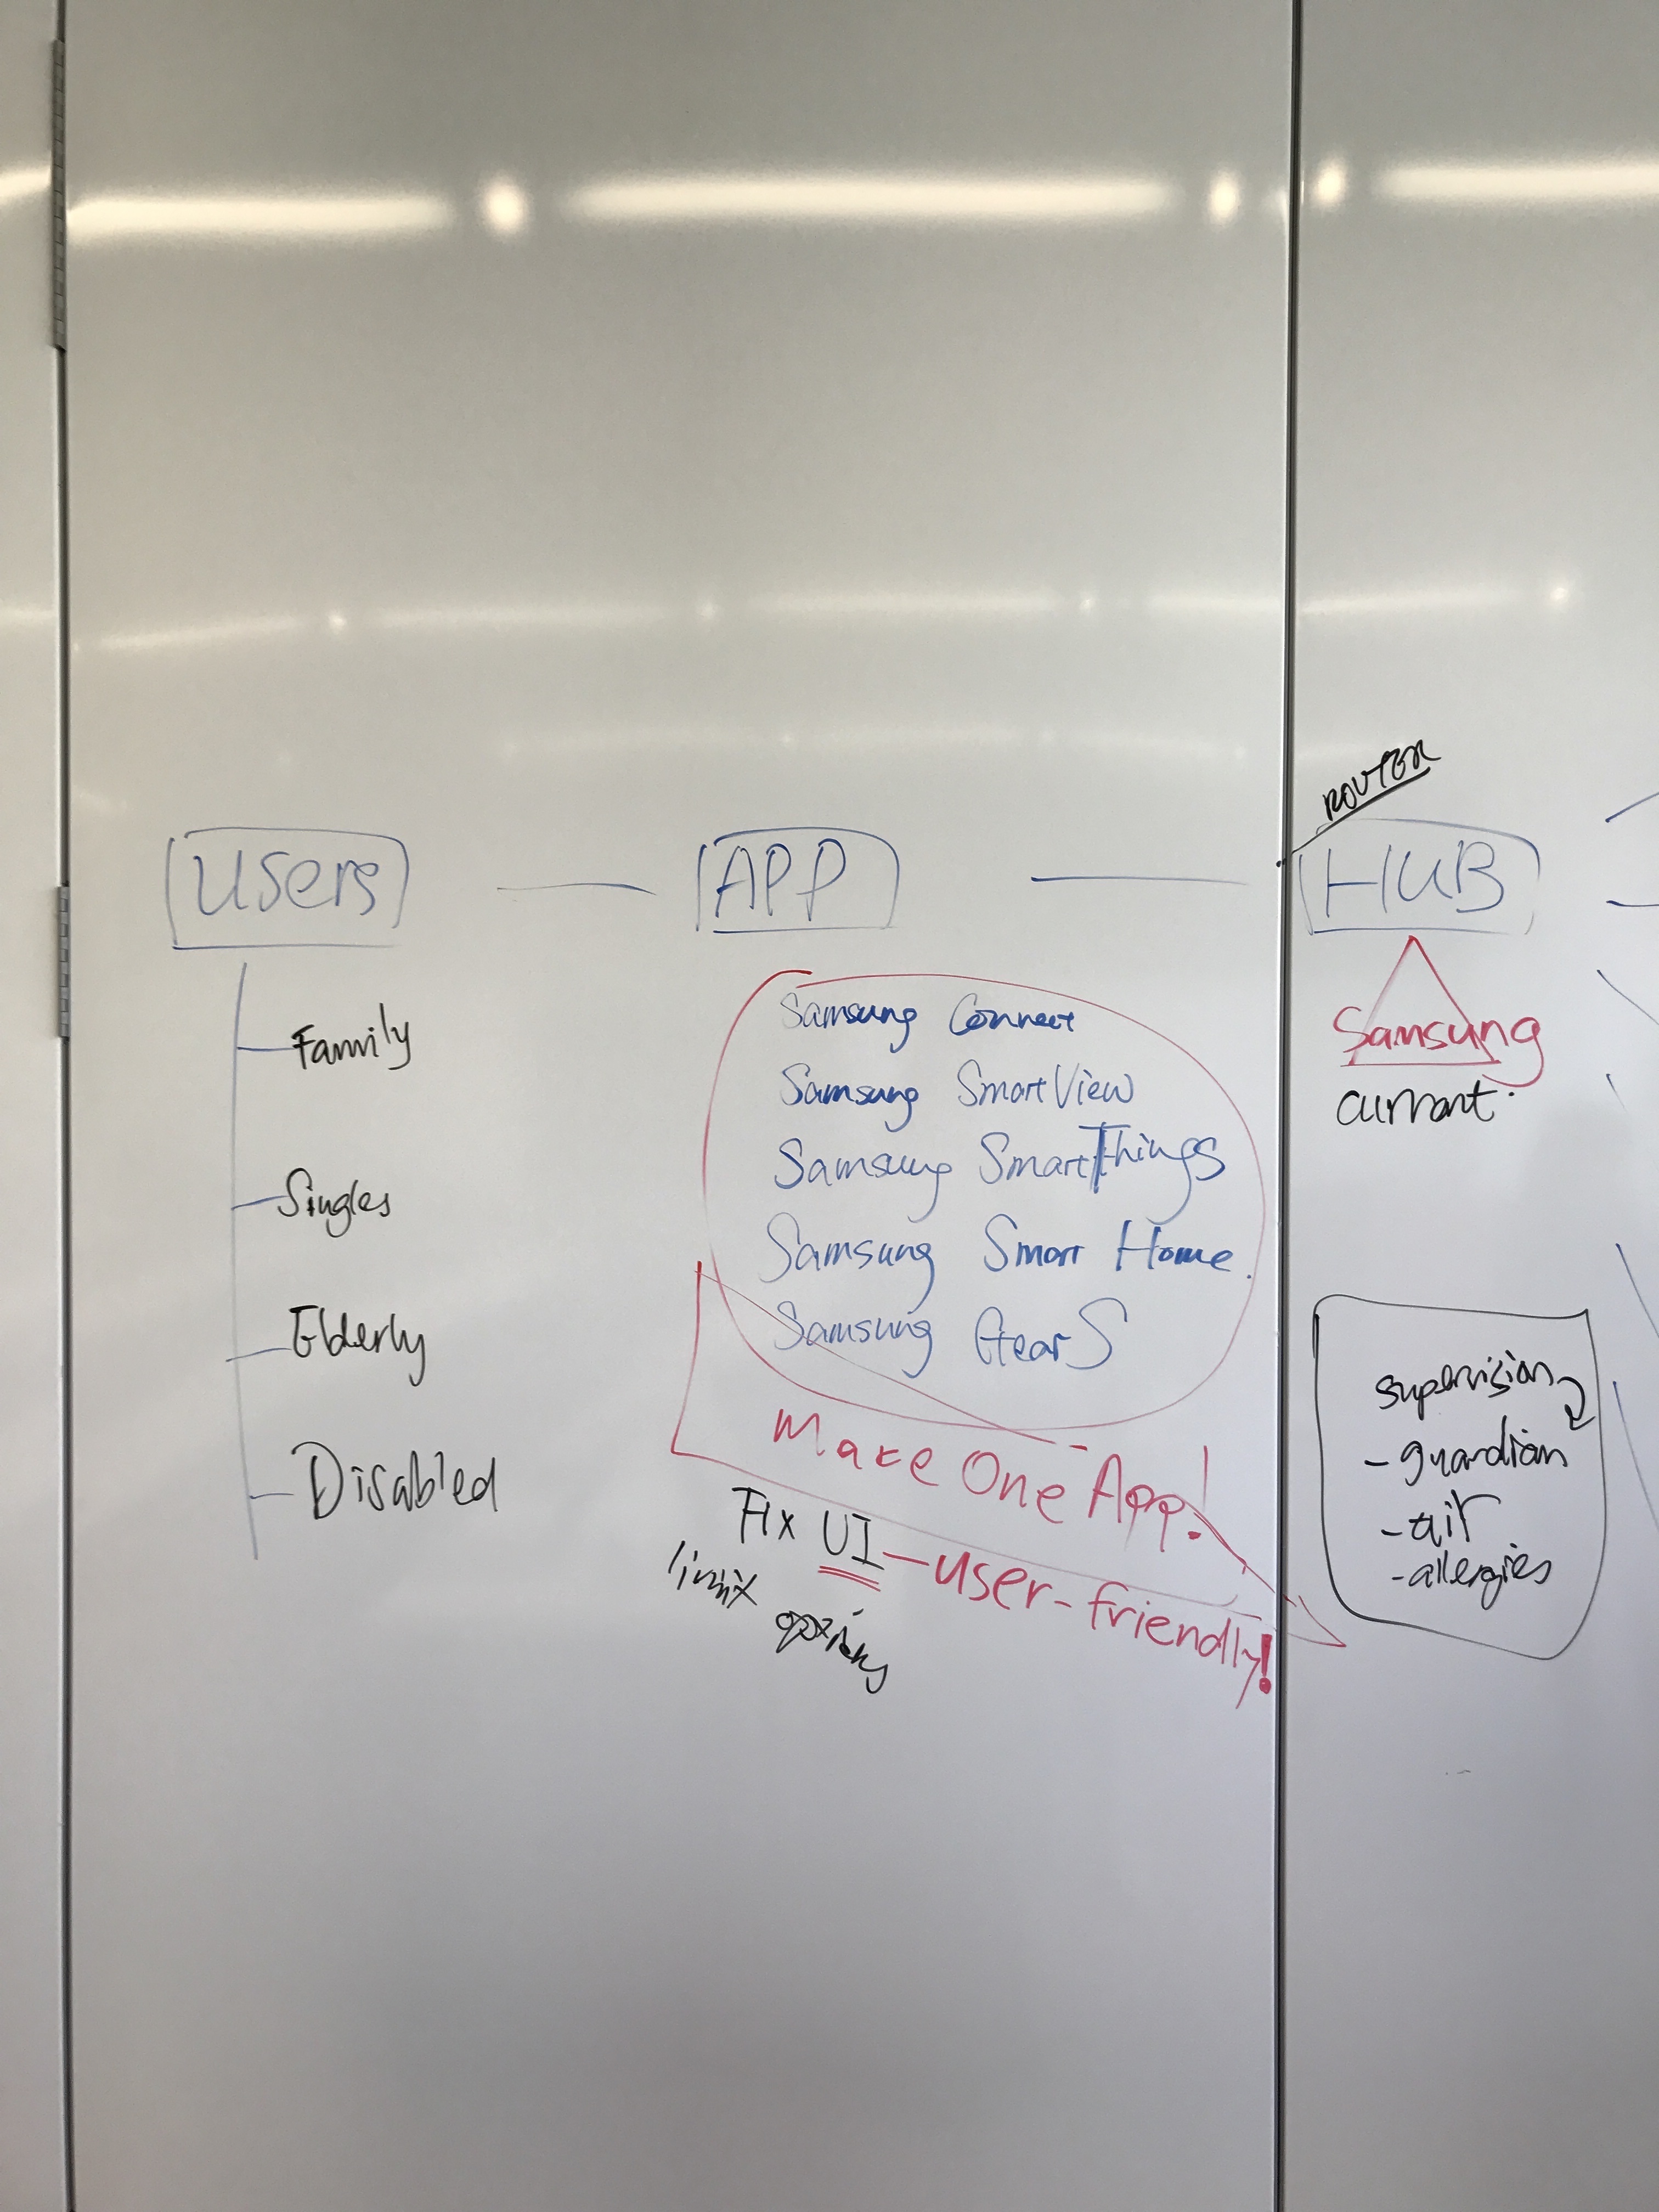 ROUTER
USERS
APP
HUB
Family
Singles
Elderly
Disabled
Samsung Connect
Samsung SmartView
Samsung SmartThings
Samsung Smart Home.
Samsung Gear S
Make One App!
Fix UI - user-friendly!
limit options
Samsung
current.
supervision
- guardian
- air
- allergies